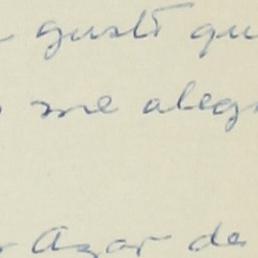 gustó qu
me aleg
Azar de